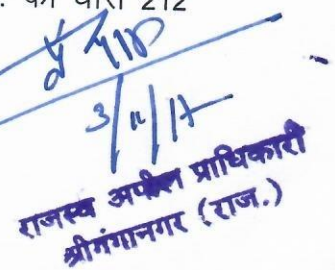 की धारा 212
3/11/17
राजस्व अपील प्राधिकारी
श्रीगंगानगर (राज.)